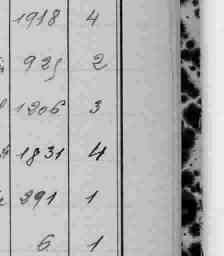 1918 4
925 2
1206 3
1831 4
291 1
6 1